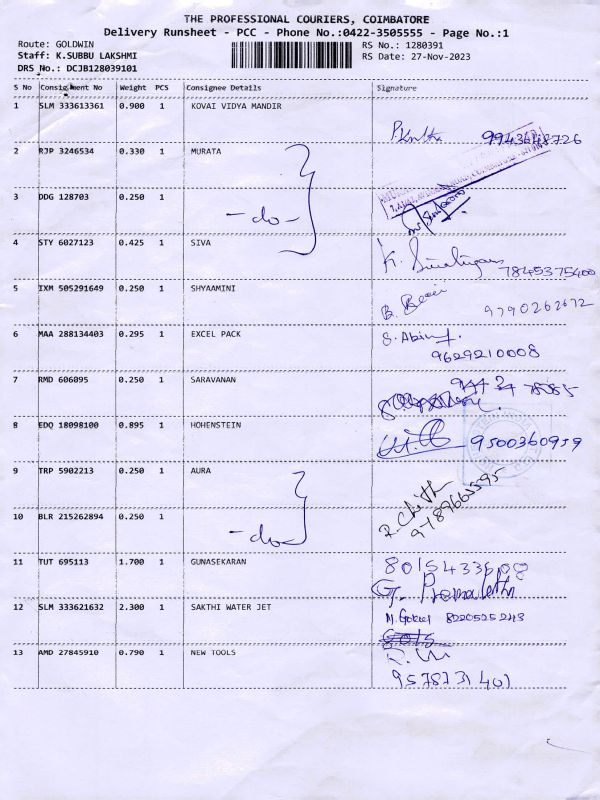 THE PROFESSIONAL COURIERS, COIMBATORE
Delivery Runsheet - PCC - Phone No.:0422-3505555 - Page No.:1
Route: GOLDWIN RS No.: 1280391
Staff: K.SUBBU LAKSHMI RS Date: 27-Nov-2023
DRS No.: DCJB128039101
S No Consignment No Weight PCS Consignee Details Signature
1 SLM 333613361 0.900 1 KOVAI VIDYA MANDIR
9943648726
2 RJP 3246534 0.330 1 MURATA
3 DDG 128703 0.250 1
-do-
4 STY 6027123 0.425 1 SIVA
7845375400
5 IXM 505291649 0.250 1 SHYAAMINI
9790262672
6 MAA 288134403 0.295 1 EXCEL PACK
9629210008
7 RMD 606095 0.250 1 SARAVANAN
8 EDQ 18098100 0.895 1 HOHENSTEIN
9500360959
9 TRP 5902213 0.250 1 AURA
9789665595
10 BLR 215262894 0.250 1
-do-
11 TUT 695113 1.700 1 GUNASEKARAN
8015433608
G. Premalatha
12 SLM 333621632 2.300 1 SAKTHI WATER JET
M. Gokul 8220525243
13 AMD 27845910 0.790 1 NEW TOOLS
9578731401